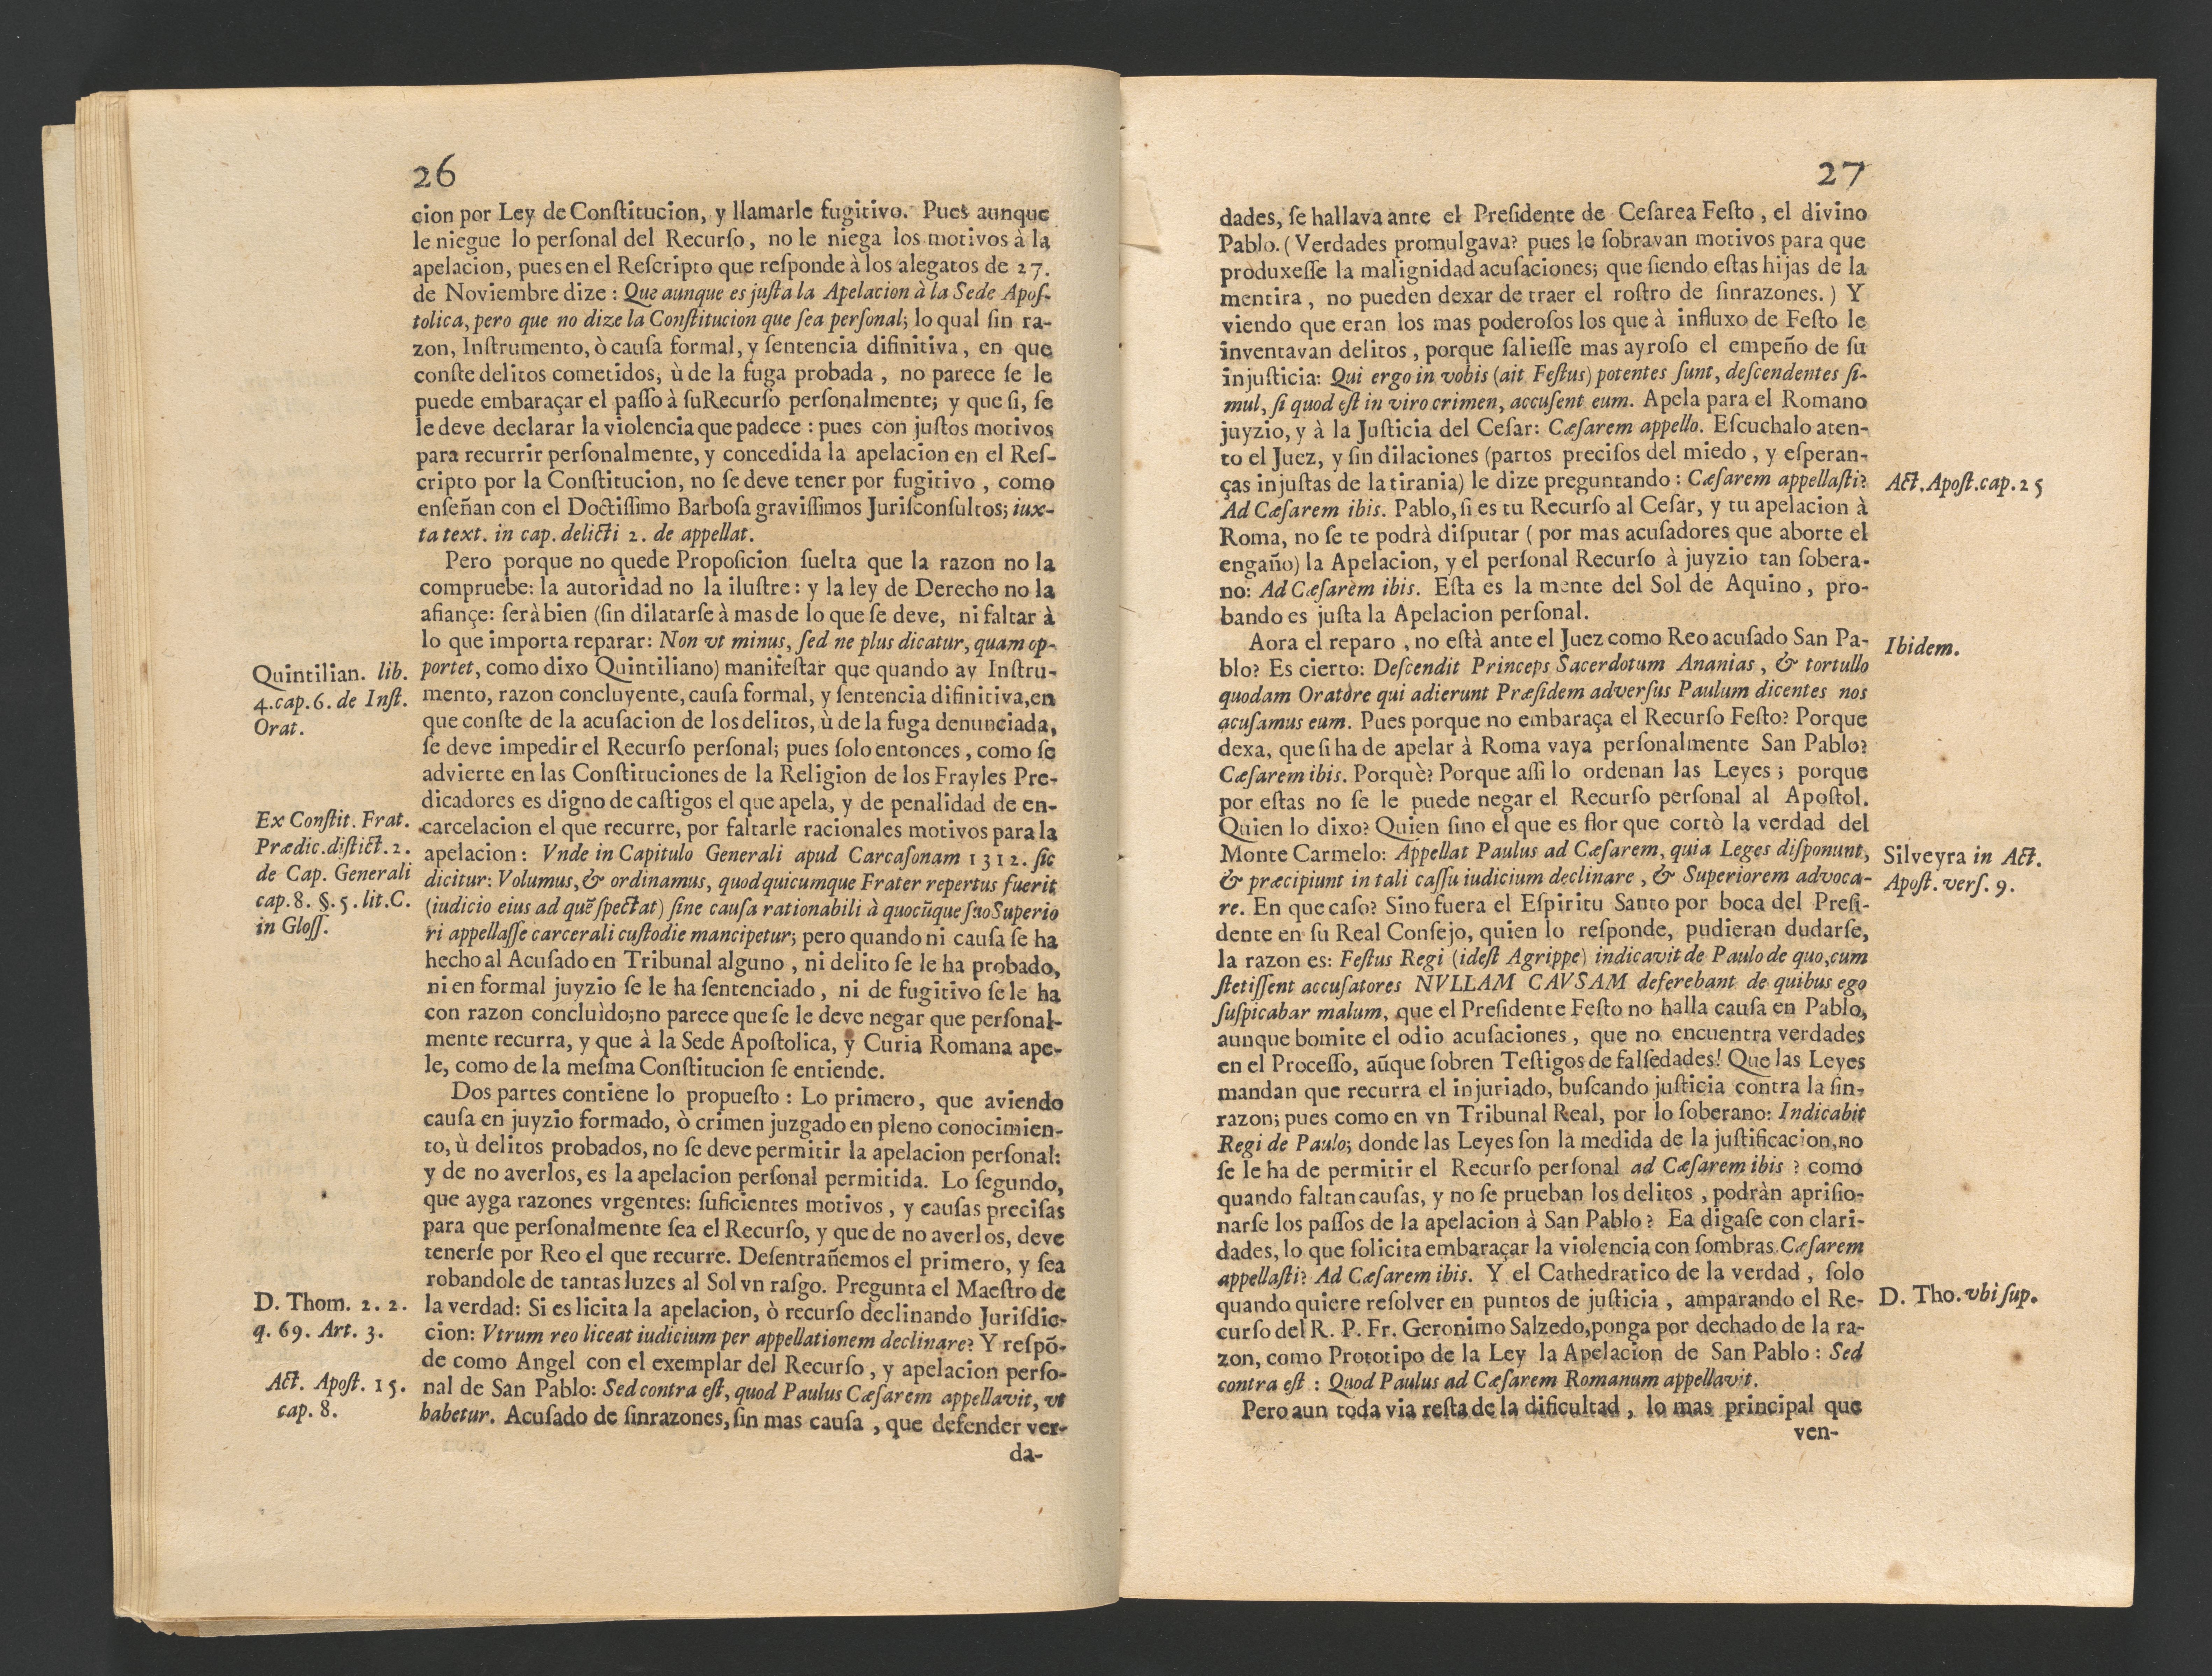 26
cion por Ley de Conſtitucion, y llamarle fugitivo. Pues aunque
le niegue lo perſonal del Recurſo, no le niega los motivos à la
apelacion, pues en el Reſcripto que reſponde à los alegatos de 27.
de Noviembre dize: Que aunque es juſta la Apelacion à la Sede Apoſ-
tolica, pero que no dize la Conſtitucion que ſea perſonal; lo qual ſin ra-
zon, Inſtrumento, ò cauſa formal, y ſentencia difinitiva, en que
conſte delitos cometidos, ù de la fuga probada, no parece ſe le
puede embaraçar el paſſo à ſuRecurſo perſonalmente; y que ſi, ſe
le deve declarar la violencia que padece: pues con juſtos motivos
para recurrir perſonalmente, y concedida la apelacion en el Reſ-
cripto por la Conſtitucion, no ſe deve tener por fugitivo, como
enſeñan con el Doctiſſimo Barboſa graviſſimos Juriſconſultos; iux-
ta text. in cap. delicti 2. de appellat.
Pero porque no quede Propoſicion ſuelta que la razon no la
compruebe: la autoridad no la iluſtre: y la ley de Derecho no la
afiançe: ſerà bien (ſin dilatarſe à mas de lo que ſe deve, ni faltar à
lo que importa reparar: Non vt minus, ſed ne plus dicatur, quam op-
portet, como dixo Quintiliano) manifeſtar que quando ay Inſtru-
mento, razon concluyente, cauſa formal, y ſentencia difinitiva, en
que conſte de la acuſacion de los delitos, ù de la fuga denunciada,
ſe deve impedir el Recurſo perſonal; pues ſolo entonces, como ſe
advierte en las Conſtituciones de la Religion de los Frayles Pre-
dicadores es digno de caſtigos el que apela, y de penalidad de en-
carcelacion el que recurre, por faltarle racionales motivos para la
apelacion: Vnde in Capitulo Generali apud Carcaſonam 1312. ſic
dicitur: Volumus, & ordinamus, quod quicumque Frater repertus fuerit
(iudicio eius ad quẽ ſpectat) ſine cauſa rationabili à quocũque ſuoSuperio
ri appellaſſe carcerali cuſtodie mancipetur; pero quando ni cauſa ſe ha
hecho al Acuſado en Tribunal alguno, ni delito ſe le ha probado,
ni en formal juyzio ſe le ha ſentenciado, ni de fugitivo ſe le ha
con razon concluìdo; no parece que ſe le deve negar que perſonal-
mente recurra, y que à la Sede Apoſtolica, y Curia Romana ape-
le, como de la meſma Conſtitucion ſe entiende.
Dos partes contiene lo propueſto: Lo primero, que aviendo
cauſa en juyzio formado, ò crimen juzgado en pleno conocimien-
to, ù delitos probados, no ſe deve permitir la apelacion perſonal:
y de no averlos, es la apelacion perſonal permitida. Lo ſegundo,
que ayga razones vrgentes: ſuficientes motivos, y cauſas preciſas
para que perſonalmente ſea el Recurſo, y que de no averlos, deve
tenerſe por Reo el que recurre. Deſentrañemos el primero, y ſea
robandole de tantas luzes al Sol vn raſgo. Pregunta el Maeſtro de
la verdad: Si es licita la apelacion, ò recurſo declinando Juriſdic-
cion: Vtrum reo liceat iudicium per appellationem declinare? Y reſpõ-
de como Angel con el exemplar del Recurſo, y apelacion perſo-
nal de San Pablo: Sed contra eſt, quod Paulus Cæſarem appellavit, vt
habetur. Acuſado de ſinrazones, ſin mas cauſa, que defender ver-
da-
Quintilian. lib.
4.cap.6. de Inſt.
Orat.
Ex Conſtit. Frat.
Prædic.diſtict.2.
de Cap. Generali
cap.8. §.5.lit.C.
in Gloſſ.
D. Thom. 2. 2.
q. 69. Art. 3.
Act. Apoſt. 15.
cap. 8.
27
dades, ſe hallava ante el Preſidente de Ceſarea Feſto, el divino
Pablo. (Verdades promulgava? pues le ſobravan motivos para que
produxeſſe la malignidad acuſaciones; que ſiendo eſtas hijas de la
mentira, no pueden dexar de traer el roſtro de ſinrazones.) Y
viendo que eran los mas poderoſos los que à influxo de Feſto le
inventavan delitos, porque ſalieſſe mas ayroſo el empeño de ſu
injuſticia: Qui ergo in vobis (ait Feſtus) potentes ſunt, deſcendentes ſi-
mul, ſi quod eſt in viro crimen, accuſent eum. Apela para el Romano
juyzio, y à la Juſticia del Ceſar: Cæſarem appello. Eſcuchalo aten-
to el Juez, y ſin dilaciones (partos preciſos del miedo, y eſperan-
ças injuſtas de la tirania) le dize preguntando: Cæſarem appellaſti?
Ad Cæſarem ibis. Pablo, ſi es tu Recurſo al Ceſar, y tu apelacion à
Roma, no ſe te podrà diſputar (por mas acuſadores que aborte el
engaño) la Apelacion, y el perſonal Recurſo à juyzio tan ſobera-
no: Ad Cæſarèm ibis. Eſta es la mente del Sol de Aquino, pro-
bando es juſta la Apelacion perſonal.
Aora el reparo, no eſtà ante el Juez como Reo acuſado San Pa-
blo? Es cierto: Deſcendit Princeps Sacerdotum Ananias, & tortullo
quodam Oratòre qui adierunt Præſidem adverſus Paulum dicentes nos
acuſamus eum. Pues porque no embaraça el Recurſo Feſto? Porque
dexa, que ſi ha de apelar à Roma vaya perſonalmente San Pablo?
Cæſarem ibis. Porquè? Porque aſſi lo ordenan las Leyes; porque
por eſtas no ſe le puede negar el Recurſo perſonal al Apoſtol.
Quien lo dixo? Quien ſino el que es flor que cortò la verdad del
Monte Carmelo: Appellat Paulus ad Cæſarem, quia Leges diſponunt,
& præcipiunt in tali caſſu iudicium declinare, & Superiorem advoca-
re. En que caſo? Sino fuera el Eſpiritu Santo por boca del Preſi-
dente en ſu Real Conſejo, quien lo reſponde, pudieran dudarſe,
la razon es: Feſtus Regi (ideſt Agrippe) indicavit de Paulo de quo, cum
ſtetiſſent accuſatores NVLLAM CAVSAM deferebant de quibus ego
ſuſpicabar malum, que el Preſidente Feſto no halla cauſa en Pablo,
aunque bomite el odio acuſaciones, que no encuentra verdades
en el Proceſſo, aũque ſobren Teſtigos de falſedades! Que las Leyes
mandan que recurra el injuriado, buſcando juſticia contra la ſin-
razon; pues como en vn Tribunal Real, por lo ſoberano: Indicabit
Regi de Paulo; donde las Leyes ſon la medida de la juſtificacion, no
ſe le ha de permitir el Recurſo perſonal ad Cæſarem ibis? como
quando faltan cauſas, y no ſe prueban los delitos, podràn apriſio-
narſe los paſſos de la apelacion à San Pablo? Ea digaſe con clari-
dades, lo que ſolicita embaraçar la violencia con ſombras. Cæſarem
appellaſti? Ad Cæſarem ibis. Y el Cathedratico de la verdad, ſolo
quando quiere reſolver en puntos de juſticia, amparando el Re-
curſo del R. P. Fr. Geronimo Salzedo, ponga por dechado de la ra-
zon, como Prototipo de la Ley la Apelacion de San Pablo: Sed
contra eſt: Quod Paulus ad Cæſarem Romanum appellavit.
Pero aun toda via reſta de la dificultad, lo mas principal que
ven-
Act. Apoſt.cap.25
Ibidem.
Silveyra in Act.
Apoſt. verſ. 9.
D. Tho. vbi ſup.